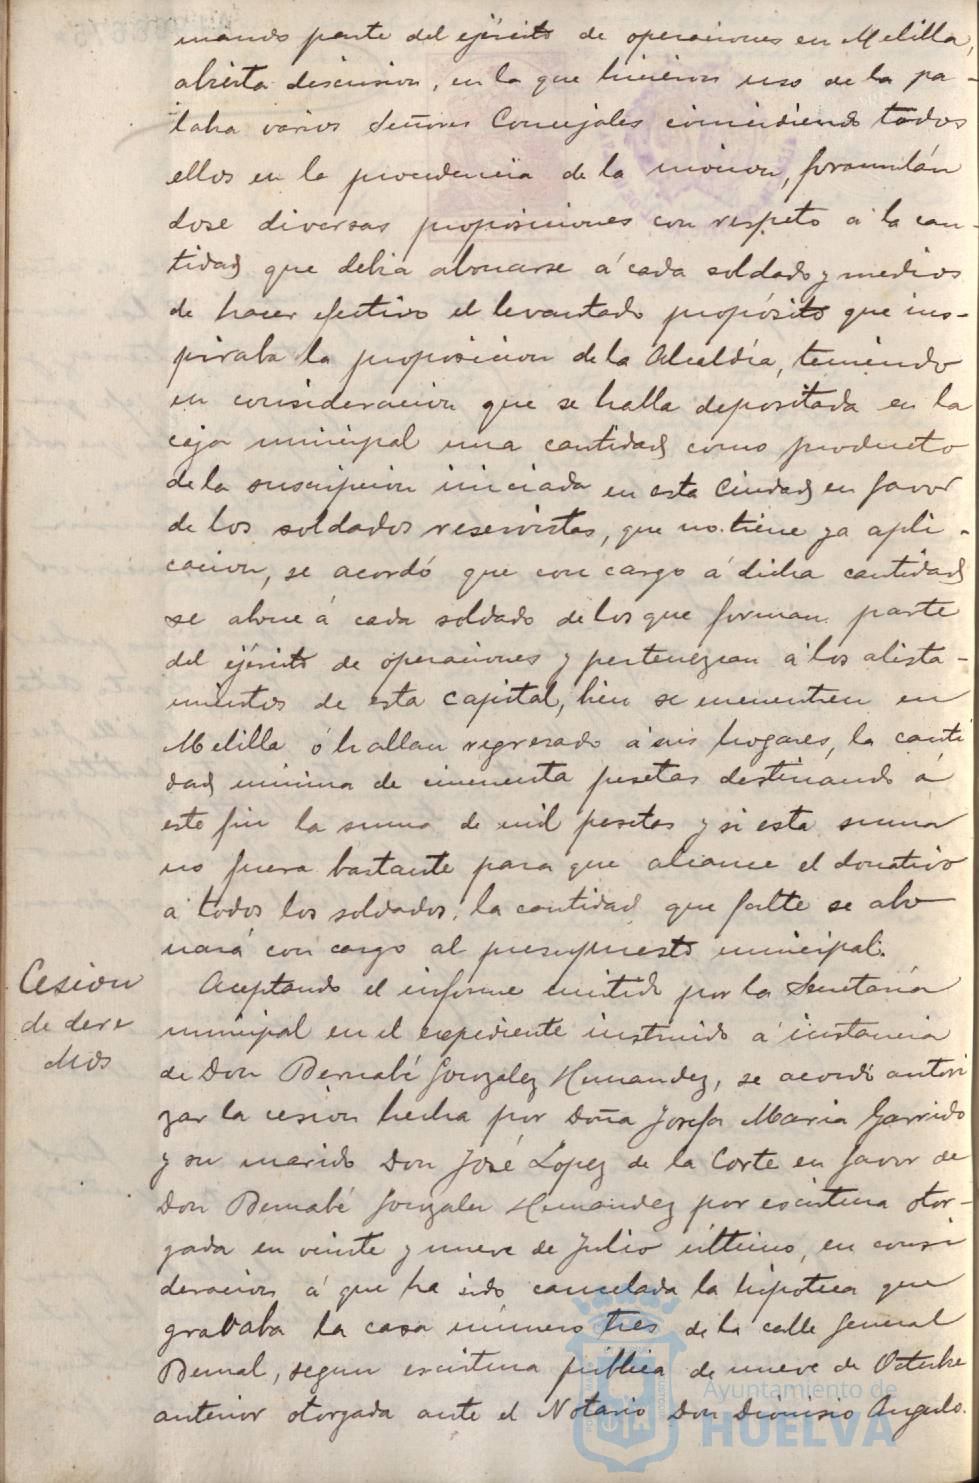 mando parte del ejército de operaciones en Melilla,
abierta discusion, en la que hicieron uso de la pa-
labra varios Señores Concejales coincidiendo todos
ellos en la procedencia de la mocion, formulán
dose diversas proposiciones con respeto á la can-
tidad que debia abonarse á cada soldado y medios
de hacer efectivo el levantado propósito que ins-
piraba la proposicion de la Alcaldía, teniendo
en consideracion que se halla depositada en la
caja municipal una cantidad como producto
de la suscripcion iniciada en esta Ciudad en favor
de los soldados reservistas, que no tiene ya apli-
cacion, se acordó que con cargo á dicha cantidad
se abone á cada soldado de los que forman parte
del ejército de operaciones y pertenezcan á los alista-
mientos de esta capital, bien se encuentren en
Melilla ó hallan regresado á sus hogares, la canti
dad minima de cincuenta pesetas destinando á
este fin la suma de mil pesetas y si esta suma
no fuera bastante para que alcance el donativo
á todos los soldados, la cantidad que falte se abo
nará con cargo al presupuesto municipal.
Cesion
de dere
chos
Aceptando el informe emitido por la Secretaría
municipal en el expediente instruido á instancia
de Don Bernabé Gonzalez Hernandez, se acordó autori
zar la cesion hecha por Doña Josefa Maria Garrido
y su marido Don José Lopez de la Corte en favor de
Don Bernabé Gonzalez Hernandez por escritura otor-
gada en veinte y nueve de Julio último, en consi
deracion á que ha sido cancelada la hipoteca que
grababa la casa número tres de la calle General
Bernal, segun escritura pública de nueve de Octubre
anterior otorgada ante el Notario Don Dionisio Angulo.
Ayuntamiento de
HUELVA